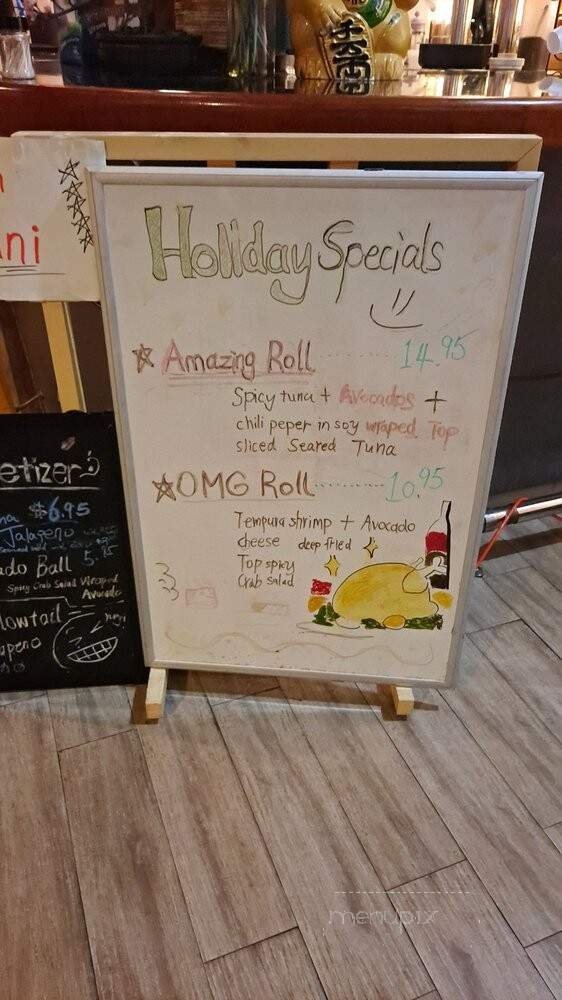 千萬両
ni
Holiday Specials
☆ Amazing Roll ........ 14.95
Spicy tuna + Avocados +
chili peper in soy wraped Top
sliced Seared Tuna
☆ OMG Roll ........ 10.95
Tempura shrimp + Avocado
cheese deep fried
Top spicy
Crab salad
etizer
na $6.95
Jalapeno
ado Ball 5.95
Spicy Crab Salad Wraped
Avocado
lowtail
apeno
menupix